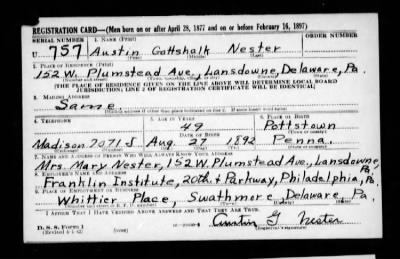 REGISTRATION CARD—(Men born on or after April 28, 1877 and on or before February 16, 1897)
SERIAL NUMBER 1. NAME (Print) ORDER NUMBER
U 757 Austin Gottshalk Nester
(First) (Middle) (Last)
2. PLACE OF RESIDENCE (Print)
152 W. Plumstead Ave., Lansdowne, Delaware, Pa.
[THE PLACE OF RESIDENCE GIVEN ON THE LINE ABOVE WILL DETERMINE LOCAL BOARD
JURISDICTION; LINE 2 OF REGISTRATION CERTIFICATE WILL BE IDENTICAL]
3. MAILING ADDRESS
Same
4. TELEPHONE 5. AGE IN YEARS 6. PLACE OF BIRTH
49 Pottstown
DATE OF BIRTH
Madison 7071 J Aug. 27 1892 Penna.
7. NAME AND ADDRESS OF PERSON WHO WILL ALWAYS KNOW YOUR ADDRESS
Mrs. Mary Nester, 152 W. Plumstead Ave., Lansdowne, Pa.
8. EMPLOYER'S NAME AND ADDRESS
Franklin Institute, 20th & Parkway, Philadelphia, Pa.
9. PLACE OF EMPLOYMENT OR BUSINESS
Whittier Place, Swathmore, Delaware, Pa.
I AFFIRM THAT I HAVE VERIFIED ABOVE ANSWERS AND THAT THEY ARE TRUE.
D. S. S. Form 1
(Revised 4-1-42) (over) Austin G. Nester
(Registrant's signature)